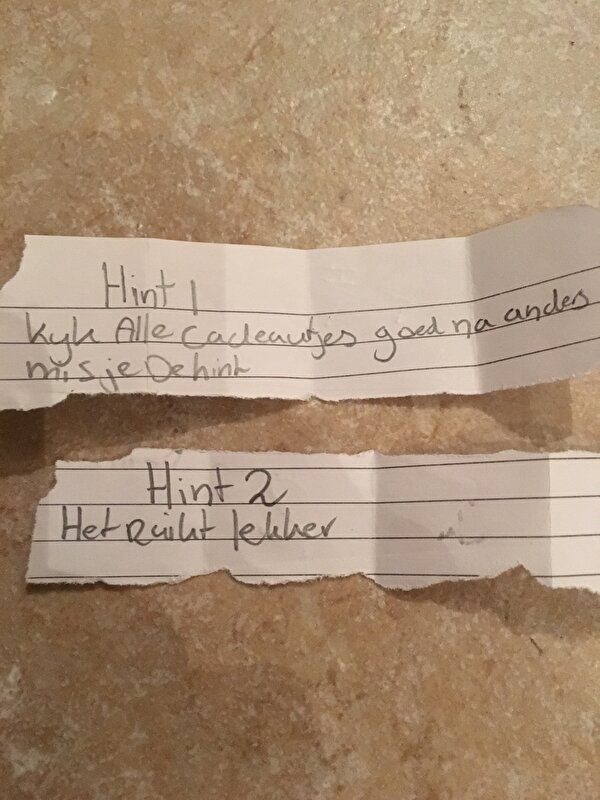 Hint 1
kyk Alle cadeautjes goed na anders
mis je De hint
Hint 2
Het Ruikt lekker